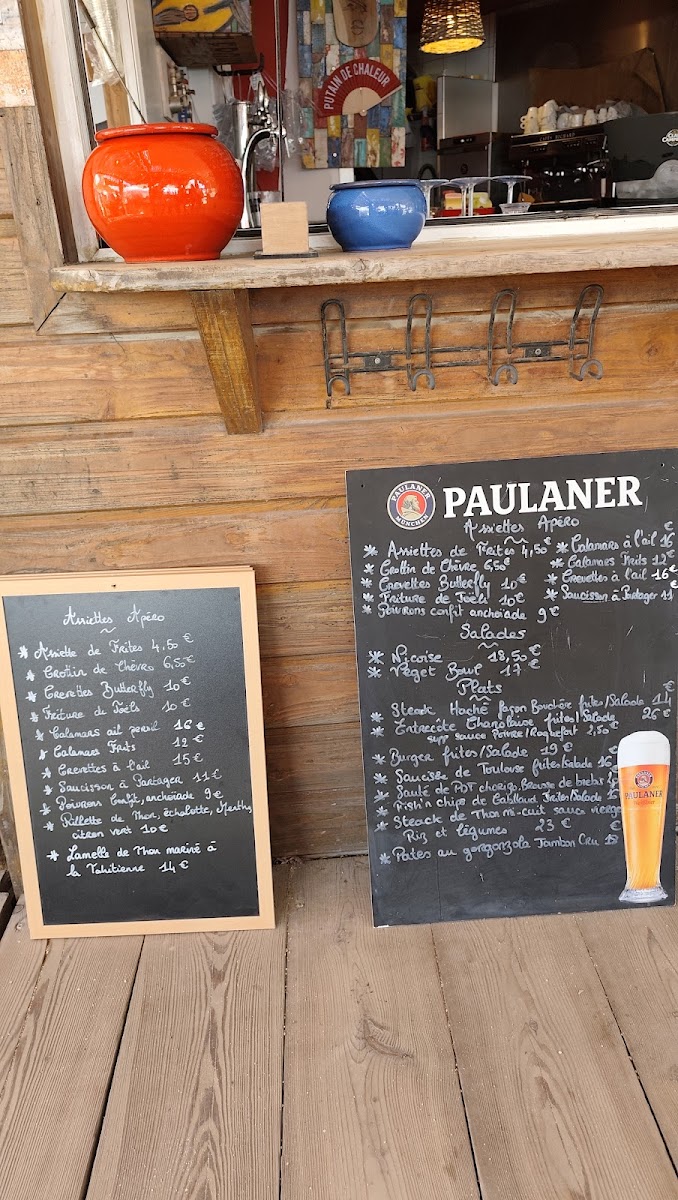 PUTAIN DE CHALEUR
Assiettes Apéro
* Assiette de Frites 4,50 €
* Crottin de Chèvre 6,50 €
* Crevettes Butterfly 10 €
* Friture de Joëls 10 €
* Calamars ail persil 16 €
* Calamars Frits 12 €
* Crevettes à l'ail 15 €
* Saucisson à Partager 11 €
* Poivrons Confit, anchoïade 9 €
* Rillette de Thon, échalotte, Menthe,
citron vert 10 €
* Lamelle de Thon mariné à
la Tahitienne 14 €
PAULANER
MÜNCHEN
PAULANER
Assiettes Apéro
* Assiettes de Frites 4,50 €
* Crottin de Chèvre 6,50 €
* Crevettes Butterfly 10 €
* Friture de Joëls 10 €
* Poivrons confit anchoïade 9 €
€
* Calamars à l'ail 16
* Calamars Frits 12 €
* Crevettes à l'ail 16 €
* Saucisson à Partager 11 €
Salades
* Niçoise 18,50 €
* Veget Bowl 17 €
Plats
* Steack Haché façon Bouchère frites/Salade 14
* Entrecôte Charolaise frites/Salade 26 €
supp sauce Poivre/Roquefort 2,50 €
* Burger frites/Salade 19 €
* Saucisse de Toulouse frites/Salade 16
* Sauté de PDT chorizo, Brousse de brebis
* Fish'n chips de Cabillaud Frites/Salade
* Steack de Thon mi-cuit sauce vierge
Riz et légumes 23 €
* Pates au gorgonzola Jambon Cru
PAULANER